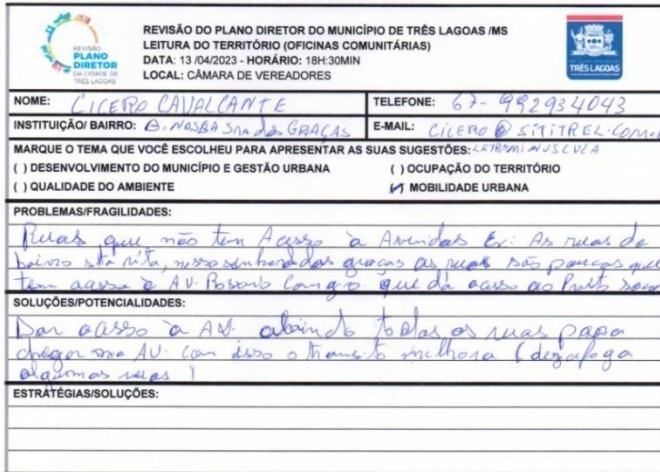 REVISÃO
PLANO
DIRETOR
DA CIDADE DE
TRÊS LAGOAS
REVISÃO DO PLANO DIRETOR DO MUNICÍPIO DE TRÊS LAGOAS /MS
LEITURA DO TERRITÓRIO (OFICINAS COMUNITÁRIAS)
DATA: 13 /04/2023 - HORÁRIO: 18H:30MIN
LOCAL: CÂMARA DE VEREADORES
TRÊS LAGOAS
NOME: CICERO CAVALCANTE
TELEFONE: 67- 992934043
INSTITUIÇÃO/ BAIRRO: B. NOSSA SRA das GRAÇAS
E-MAIL: CICERO @ SITITREL.COM.B
MARQUE O TEMA QUE VOCÊ ESCOLHEU PARA APRESENTAR AS SUAS SUGESTÕES: LETRA MINUSCULA
( ) DESENVOLVIMENTO DO MUNICÍPIO E GESTÃO URBANA
( ) OCUPAÇÃO DO TERRITÓRIO
( ) QUALIDADE DO AMBIENTE
(✓) MOBILIDADE URBANA
PROBLEMAS/FRAGILIDADES:
Ruas que não tem Acesso à Avenidas Ex: As ruas do
bairro sta rita, nossa senhora das graças as ruas são poucas que
tem acesso à AV. Rosario Congro que da acesso ao Pronto
SOLUÇÕES/POTENCIALIDADES:
Dar acesso à AV. abrindo todas as ruas para
chegar na AV. com isso o transito melhora (dezafoga
algumas ruas)
ESTRATÉGIAS/SOLUÇÕES: